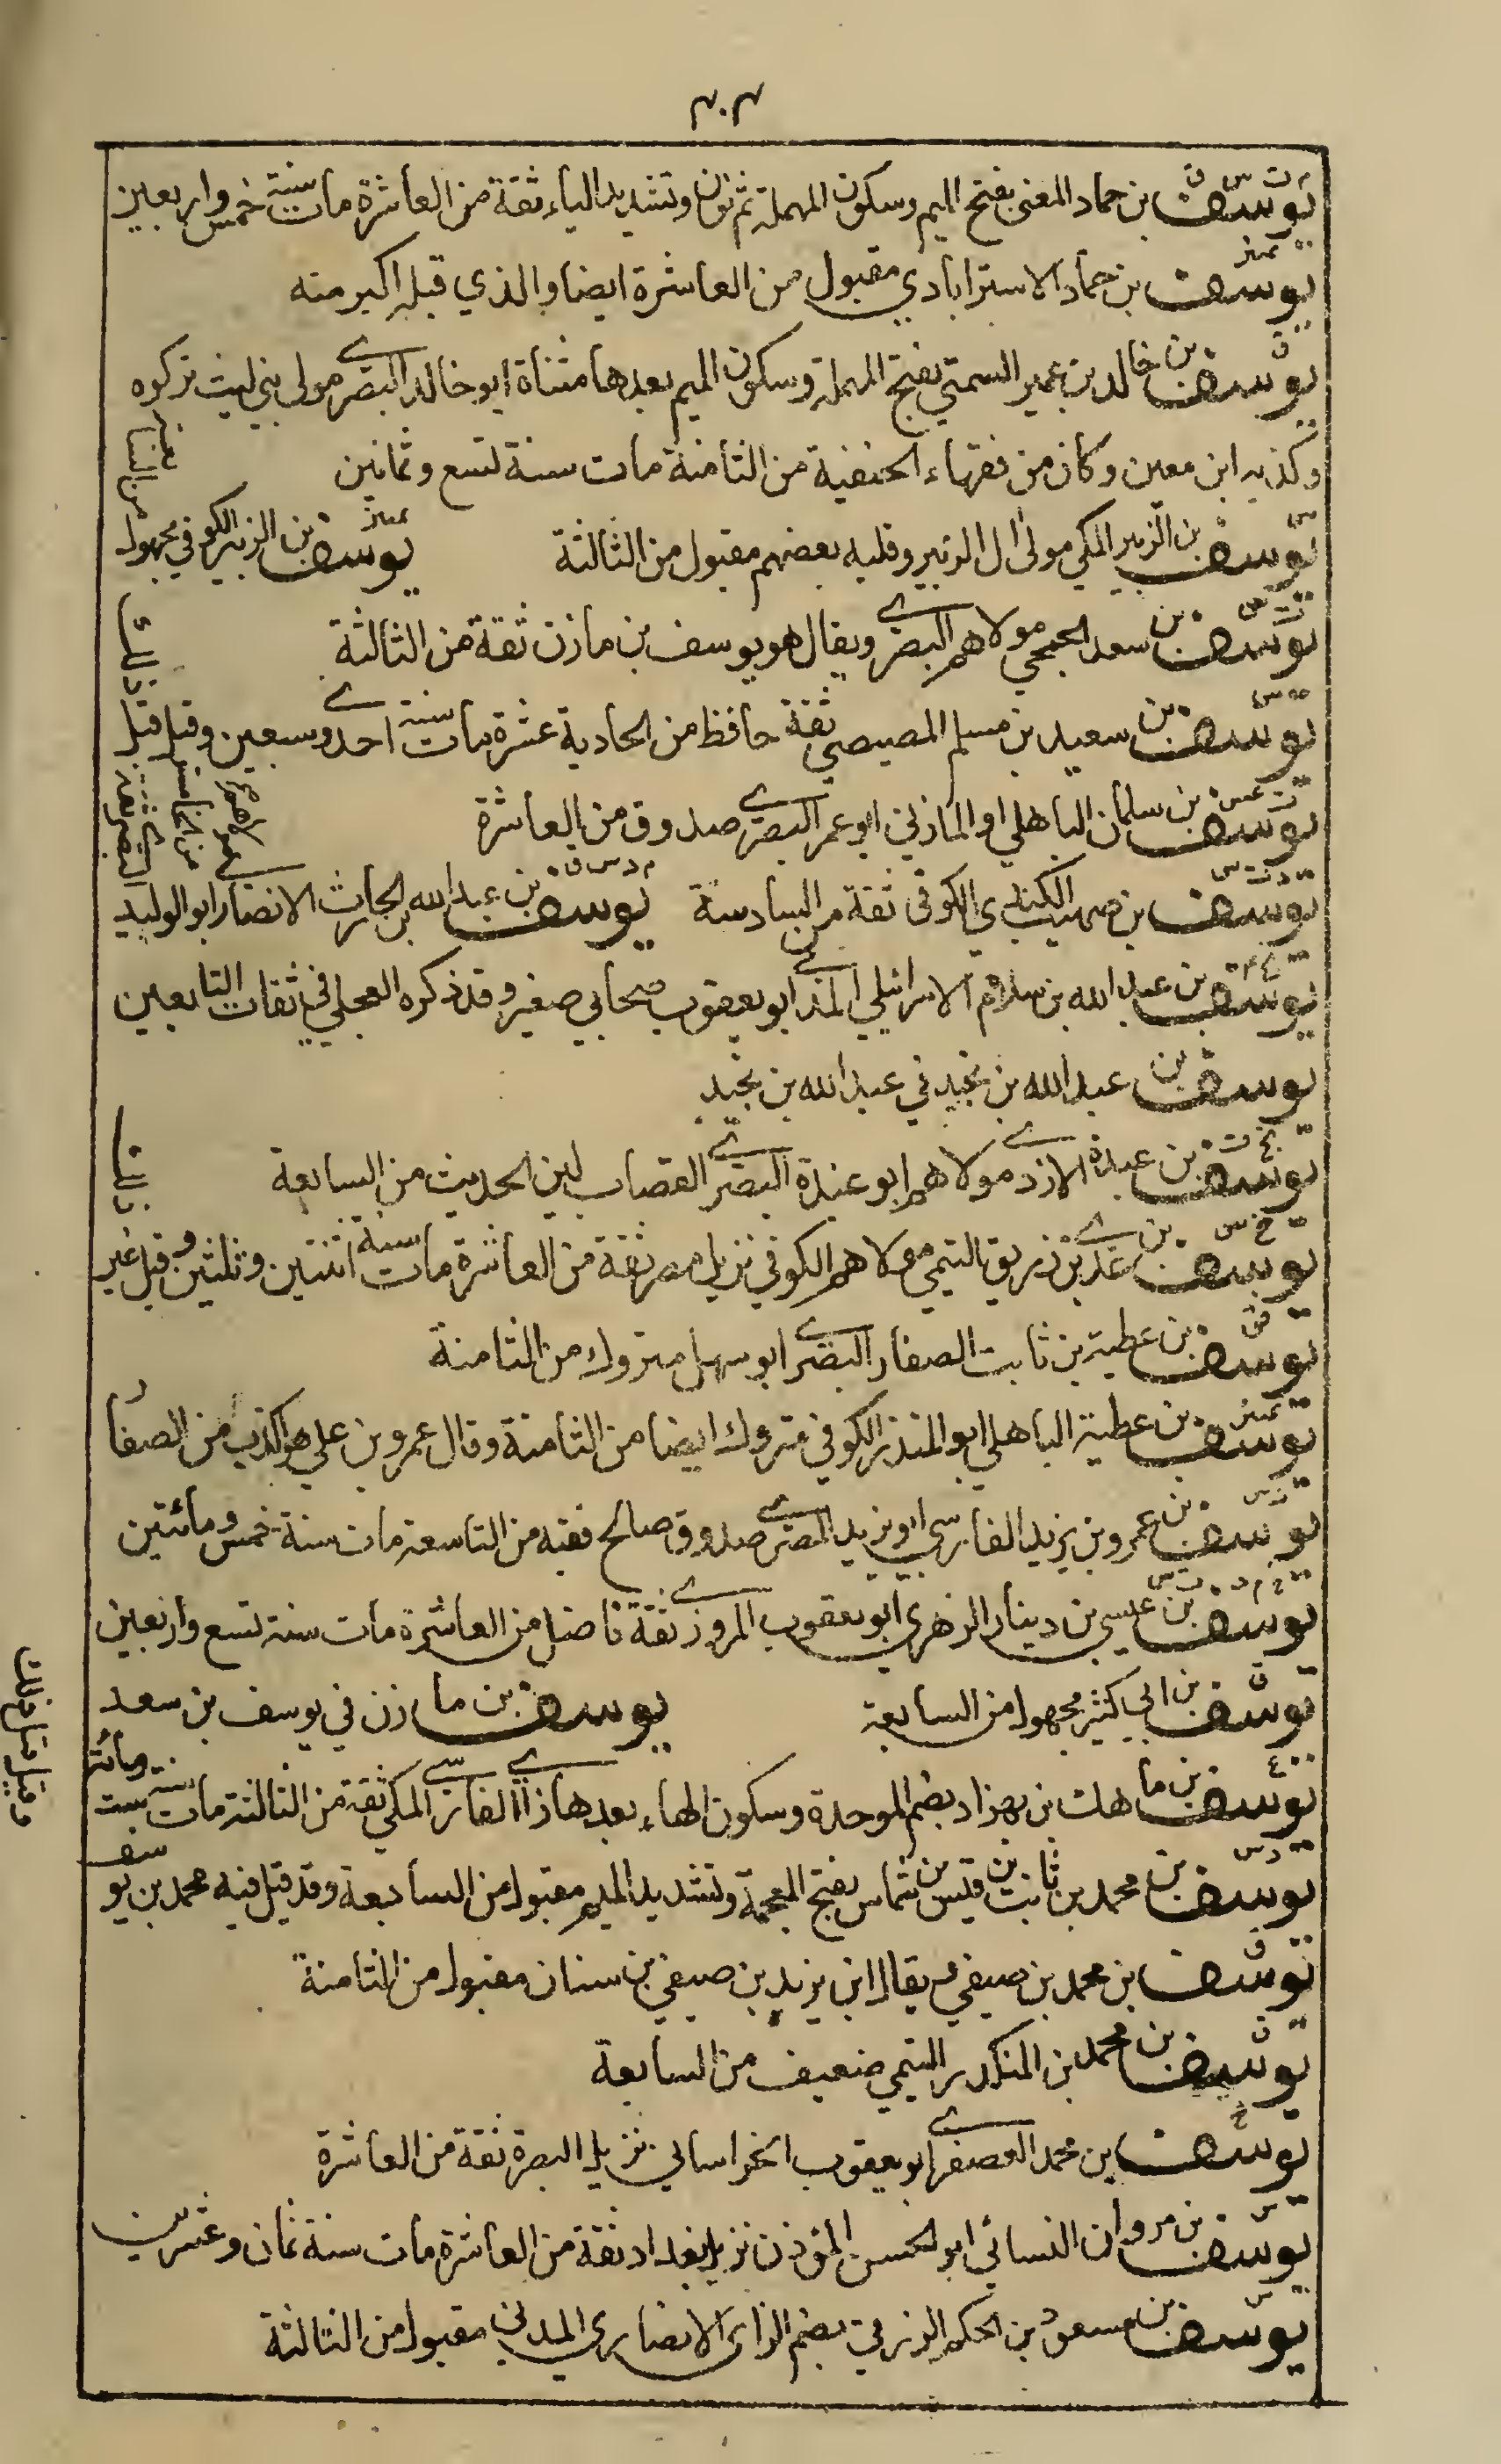 ٣٠٣
ت س ق
يوسف بن حماد المعنى بفتح الميم وسكون المهملة ثم نون وتشديد الياء ثقة من العاشرة مات سنة خمس واربعين
تمييز
يوسف بن حماد الاستراباذي مقبول من العاشرة ايضا والذي قبله اكبر منه
ق
يوسف بن خالد بن عمير السمتي بفتح المهملة وسكون الميم بعدها مثناة ابو خالد البصري مولى بني ليث تركوه
وكذبه ابن معين وكان من فقهاء الحنفية من الثامنة مات سنة تسع وثمانين
س
يوسف بن الزبير المكي مولى ال الزبير وقلبه بعضهم مقبول من الثالثة
تمييز
يوسف بن الزبير الكوفي مجهول
ت س
يوسف بن سعد الجمحي مولاهم البصري ويقال هو يوسف بن مازن ثقة من الثالثة
س
يوسف بن سعيد بن مسلم المصيصي ثقة حافظ من الحادية عشرة مات سنة احدى وسبعين وقيل قبل
ذالك
ت عس
يوسف بن سلمان الباهلي او المازني ابو عمر البصري صدوق من العاشرة
ت س
يوسف بن صهيب الكندي الكوفي ثقة من السادسة
م د س ق
يوسف بن عبد الله بن الحارث الانصاري ابو الوليد
يوسف بن عبد الله بن سلام الاسرائيلي المدني ابو يعقوب صحابي صغير وقد ذكره العجلي في ثقات التابعين
يوسف بن عبد الله بن نجيد في عبد الله بن نجيد
يوسف بن عبدة الازدي مولاهم ابو عبدة البصري القصاب لين الحديث من السابعة
خ س
يوسف بن عدي بن زريق التيمي مولاهم الكوفي نزيل مصر ثقة من العاشرة مات سنة اثنتين وثلثين وقيل غير
ذالك
فق
يوسف بن عطية بن ثابت الصفار البصري ابو سهل متروك من الثامنة
تمييز
يوسف بن عطية الباهلي ابو المنذر الكوفي متروك ايضا من الثامنة وقال عمرو بن علي هو اكذب من الصفار
د س
يوسف بن عمرو بن يزيد الفارسي ابو يزيد المصري صدوق صالح فقيه من التاسعة مات سنة خمس ومائتين
خ م د ت س
يوسف بن عيسى بن دينار الزهري ابو يعقوب المروزي ثقة فاضل من العاشرة مات سنة تسع واربعين
ق
يوسف بن ابي كثير مجهول من السابعة يوسف بن مازن في يوسف بن سعد
ع
يوسف بن ماهك بن بهزاد بضم الموحدة وسكون الهاء بعدها زاي الفارسي المكي ثقة من الثالثة مات سنة ست
ومائة
وقيل قبل ذلك
د س
يوسف بن محمد بن ثابت بن قيس بن شماس بفتح المعجمة وتشديد الميم مقبول من السابعة وقد قيل فيه محمد بن يوسف
ق
يوسف بن محمد بن صيفي ويقال ابن يزيد بن صيفي بن سنان مقبول من الثامنة
ق
يوسف بن محمد بن المنكدر التيمي ضعيف من السابعة
خ
يوسف بن محمد العصفري ابو يعقوب الخراساني نزيل البصرة ثقة من العاشرة
س
يوسف بن مروان النسائي ابو الحسن المؤذن نزيل بغداد ثقة من العاشرة مات سنة ثمان وعشرين
س
يوسف بن مسعود بن الحكم الزرقي بضم الزاي الانصاري المدني مقبول من الثالثة